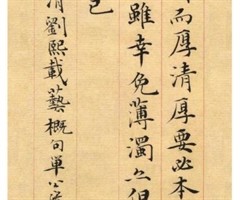 而厚清厚要必本
雖幸免薄濁亦但
已
清劉熙載藝概句單公